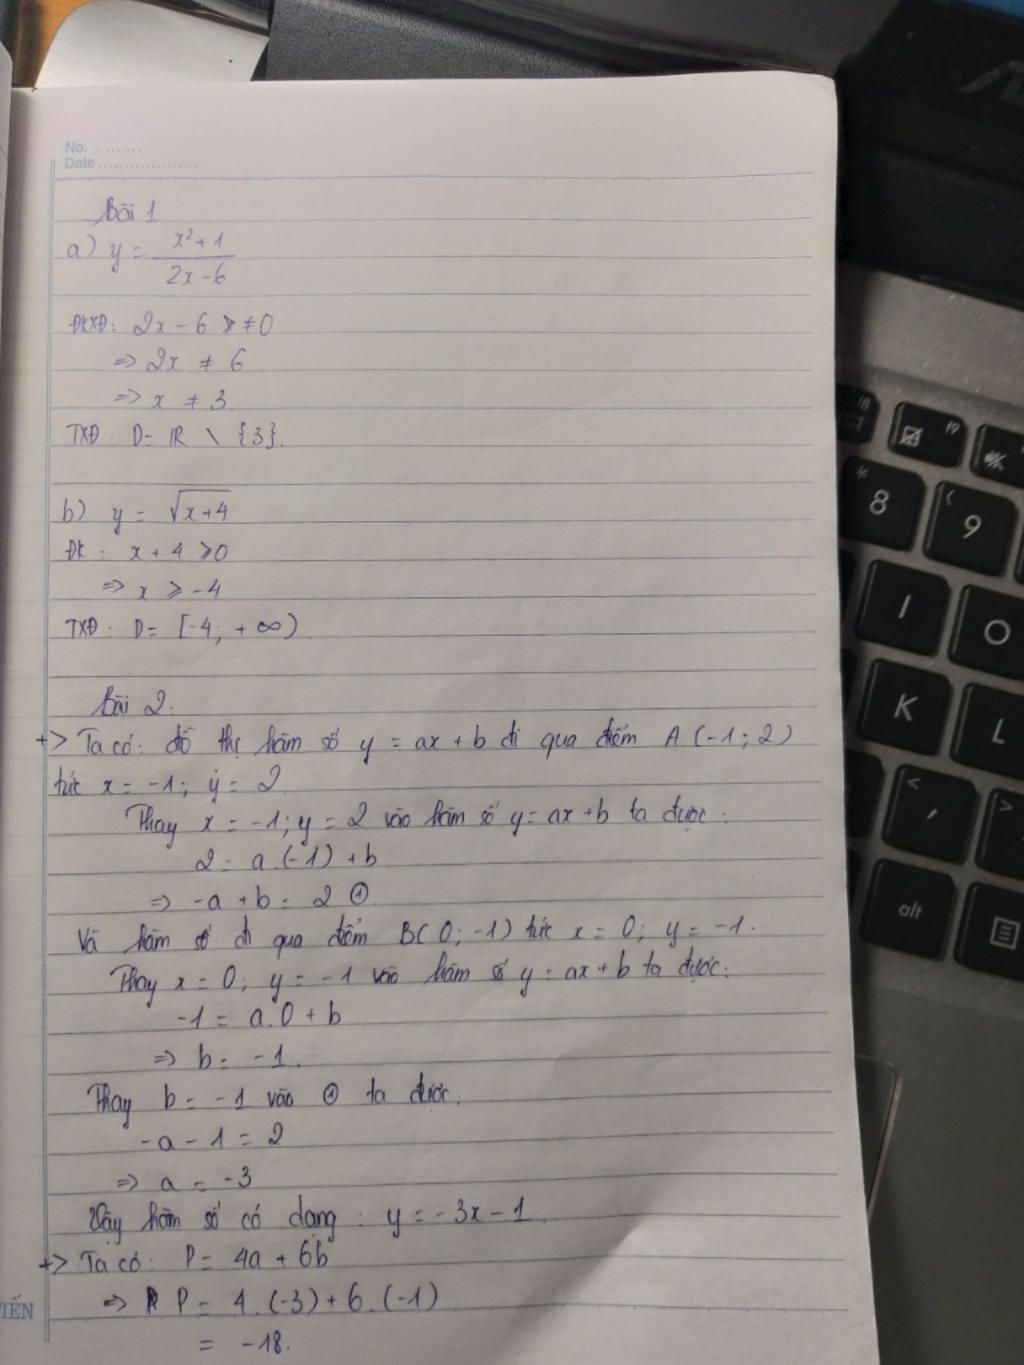 No. .........
Date ...................
Bài 1
a) y = x²+1 / 2x-6
ĐKXĐ: 2x - 6 ≠ 0
=> 2x ≠ 6
=> x ≠ 3.
TXĐ: D = R \ {3}.
b) y = √x+4
ĐK: x + 4 ≥ 0
=> x ≥ -4
TXĐ: D = [-4; +∞).
Bài 2:
+> Ta có: đồ thị hàm số y = ax + b đi qua điểm A (-1; 2)
tức x = -1; y = 2
Thay x = -1; y = 2 vào hàm số y = ax + b ta được:
2 = a.(-1) + b
=> -a + b = 2 ①.
Và hàm số đi qua điểm B( 0; -1) tức x = 0; y = -1.
Thay x = 0; y = -1 vào hàm số y = ax + b ta được:
-1 = a.0 + b
=> b = -1.
Thay b = -1 vào ① ta được.
-a - 1 = 2
=> a = -3
Vậy hàm số có dạng: y = -3x - 1.
+> Ta có: P = 4a + 6b
=> P = 4.(-3) + 6.(-1)
= -18.
IẾN
* 8
( 9
f9
I
O
K
L
< ,
>
alt